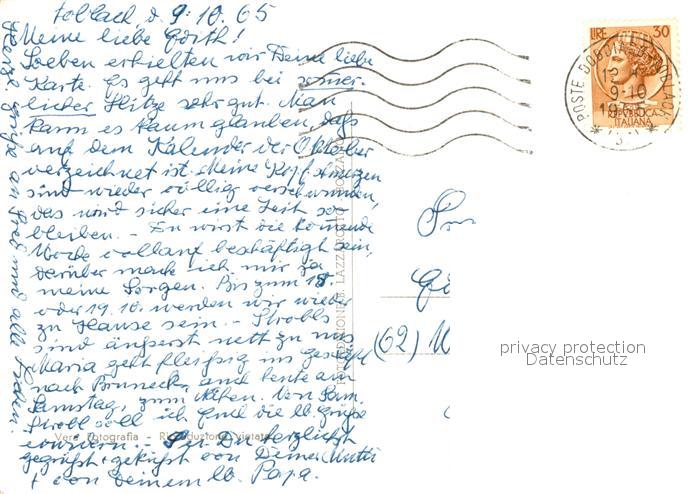 Toblach, d. 9.10.65
Meine liebe Edith!
Soeben erhielten wir Deine liebe
Karte. Es geht uns bei sommer-
licher Hitze sehr gut. Man
kann es kaum glauben, daß
auf dem Kalender der Oktober
verzeichnet ist. Meine Kopfschmerzen
sind wieder völlig verschwunden,
das wird sicher eine Zeit so
bleiben. - Du wirst die kommende
Woche vollauf beschäftigt sein,
darüber mache ich mir ja
meine Sorgen. Bis zum 18.
oder 19.10. werden wir wieder
zu Hause sein. - Strobls
sind äußerst nett zu uns
Maria geht fleißig ins
nach Brunneck, und heute am
Samstag, zum Nähen. Von Fam.
Strobl soll ich Euch die lb. Grüße
erwidern. - Sei Du herzlichst
gegrüßt + geküßt von Deiner Mutti
+ von Deinem lb. Papa.
Herzl. Grüße an und alle
Vera Fotografia - Riproduzione vietata
LIRE 30
REPUBBLICA
ITALIANA
POSTE DOBBIACO TOBLACH
9-10
(62)
privacy protection
Datenschutz